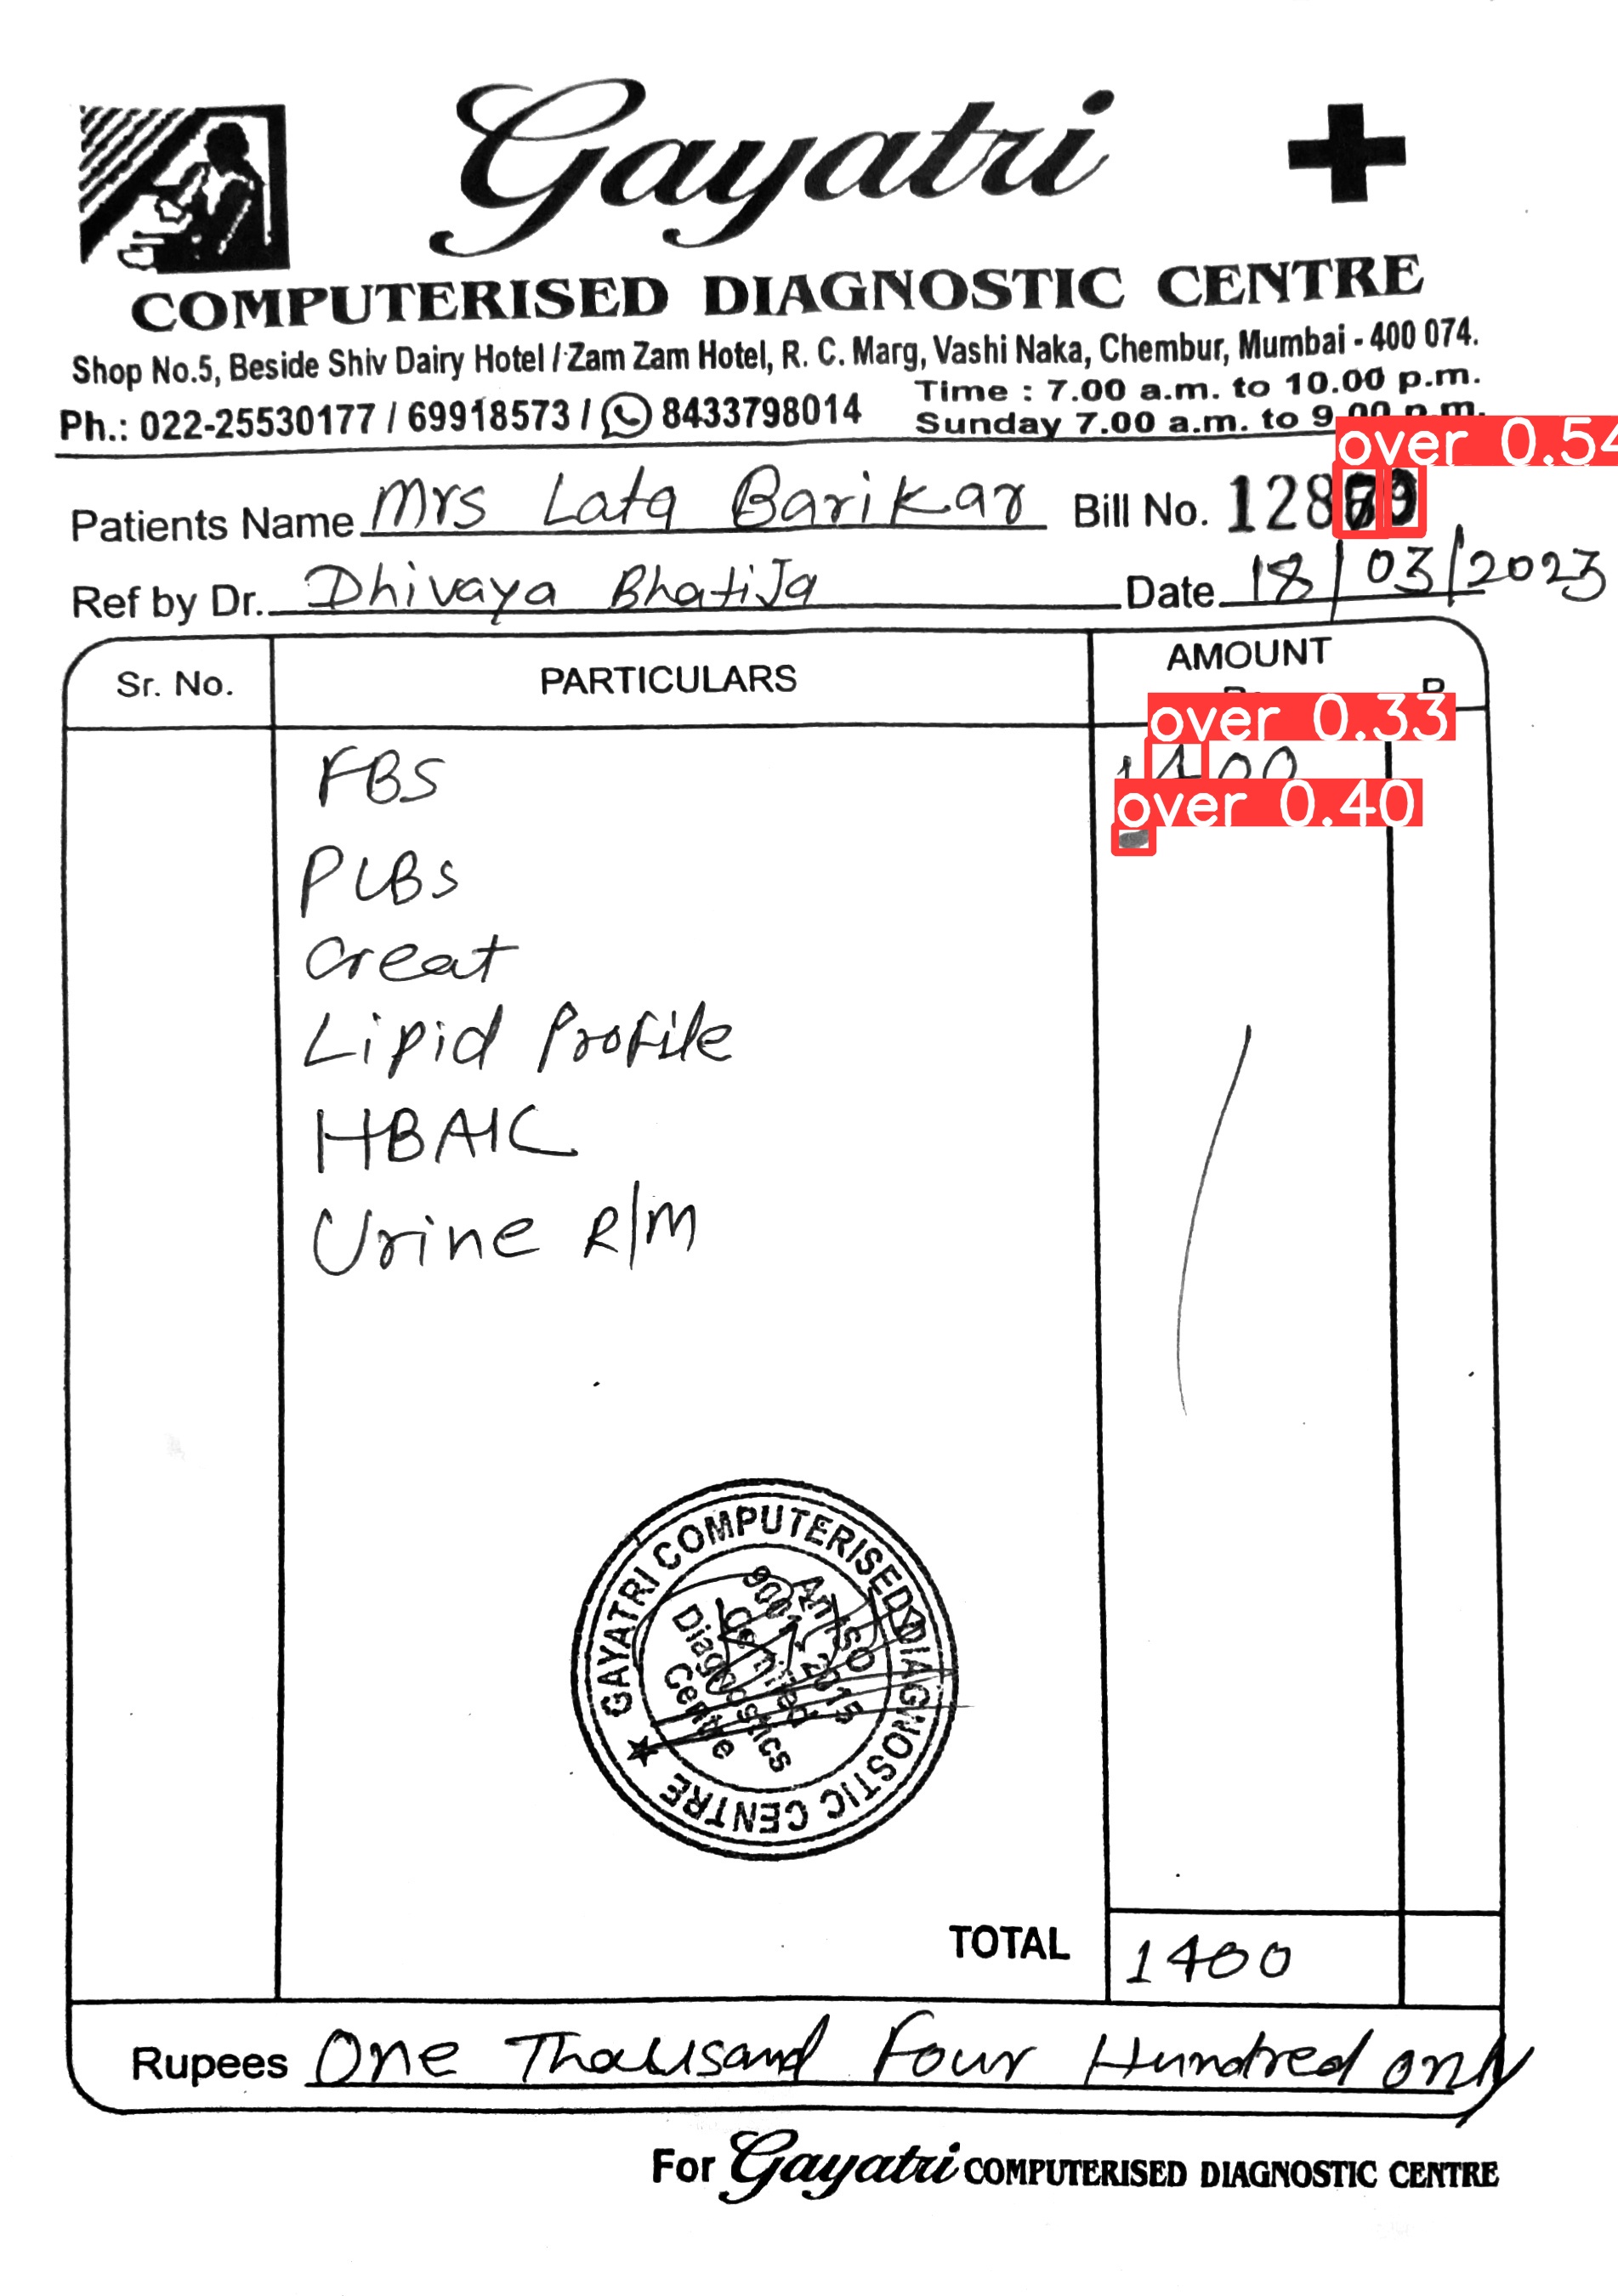 Gayatri
COMPUTERISED DIAGNOSTIC CENTRE
Shop No.5, Beside Shiv Dairy Hotel / Zam Zam Hotel, R. C. Marg, Vashi Naka, Chembur, Mumbai - 400 074.
Time : 7.00 a.m. to 10.00 p.m.
Ph.: 022-25530177 / 69918573 / 8433798014
Sunday 7.00 a.m. to 9.00 p.m.
over 0.54
Patients Name Mrs Lata Barikar Bill No.
Ref by Dr. Dhivaya Bhatija Date 18/03/2023
Sr. No. PARTICULARS AMOUNT
over 0.33
FBS 1400
over 0.40
PLBS
Creat
Lipid Profile
HBA1C
Urine R/M
GAYATRI COMPUTERISED DIAGNOSTIC CENTRE
An ISO
9001:2015
Certified
Diagnostics
Centre
TOTAL 1400
Rupees One Thousand Four Hundred only
For Gayatri COMPUTERISED DIAGNOSTIC CENTRE